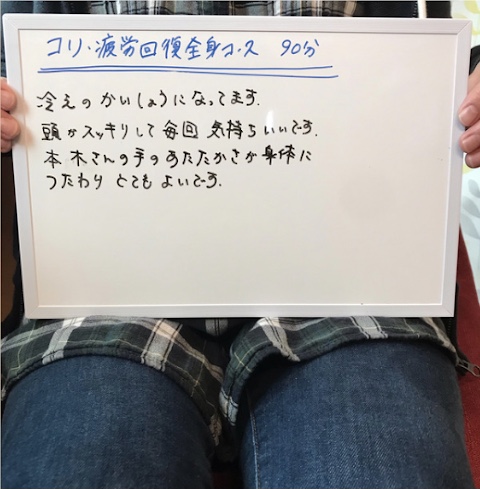 コリ・疲労回復全身コース 90分
冷えのかいしょうになってます.
頭がスッキリして毎回 気持ちいいです.
本木さんの手のあたたかさが身体に
つたわり とても よいです.